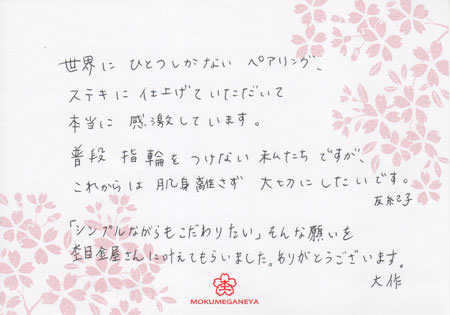 世界に ひとつしかない ペアリング、
ステキに 仕上げていただいて
本当に 感激しています。
普段 指輪を つけない 私たち ですが、
これからは 肌身離さず 大切にしたいです。
友紀子
「シンプルながらもこだわりたい」そんな願いを
杢目金屋さんに叶えてもらいました。ありがとうございます。
大作
MOKUMEGANEYA